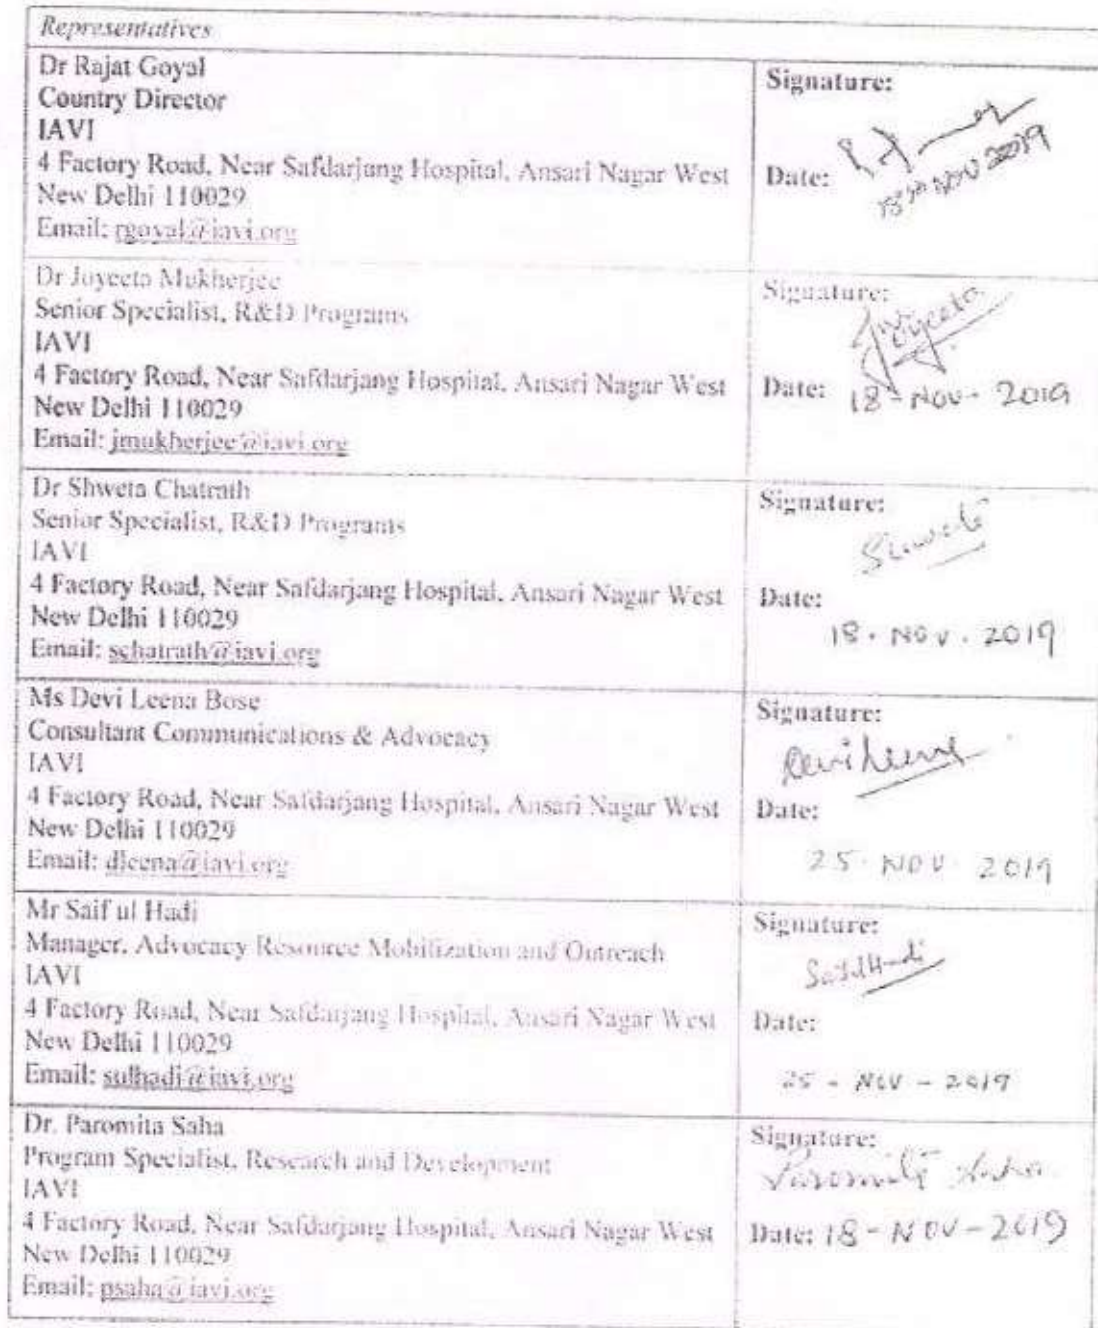 Representatives
Dr Rajat Goyal
Country Director
IAVI
4 Factory Road, Near Safdarjang Hospital, Ansari Nagar West
New Delhi 110029
Email: rgoyal@iavi.org
Signature:
Date:
18th NOV 2019
Dr Joyeeta Mukherjee
Senior Specialist, R&D Programs
IAVI
4 Factory Road, Near Safdarjang Hospital, Ansari Nagar West
New Delhi 110029
Email: jmukherjee@iavi.org
Signature:
Joyeeta
Date: 18-NOV-2019
Dr Shweta Chatrath
Senior Specialist, R&D Programs
IAVI
4 Factory Road, Near Safdarjang Hospital, Ansari Nagar West
New Delhi 110029
Email: schatrath@iavi.org
Signature:
Shweta
Date:
18. NOV. 2019
Ms Devi Leena Bose
Consultant Communications & Advocacy
IAVI
4 Factory Road, Near Safdarjang Hospital, Ansari Nagar West
New Delhi 110029
Email: dleena@iavi.org
Signature:
Devi Leena
Date:
25. NOV. 2019
Mr Saif ul Hadi
Manager, Advocacy Resource Mobilization and Outreach
IAVI
4 Factory Road, Near Safdarjang Hospital, Ansari Nagar West
New Delhi 110029
Email: sulhadi@iavi.org
Signature:
Saif ul Hadi
Date:
25 - NOV - 2019
Dr. Paromita Saha
Program Specialist, Research and Development
IAVI
4 Factory Road, Near Safdarjang Hospital, Ansari Nagar West
New Delhi 110029
Email: psaha@iavi.org
Signature:
Paromita Saha
Date: 18-NOV-2019